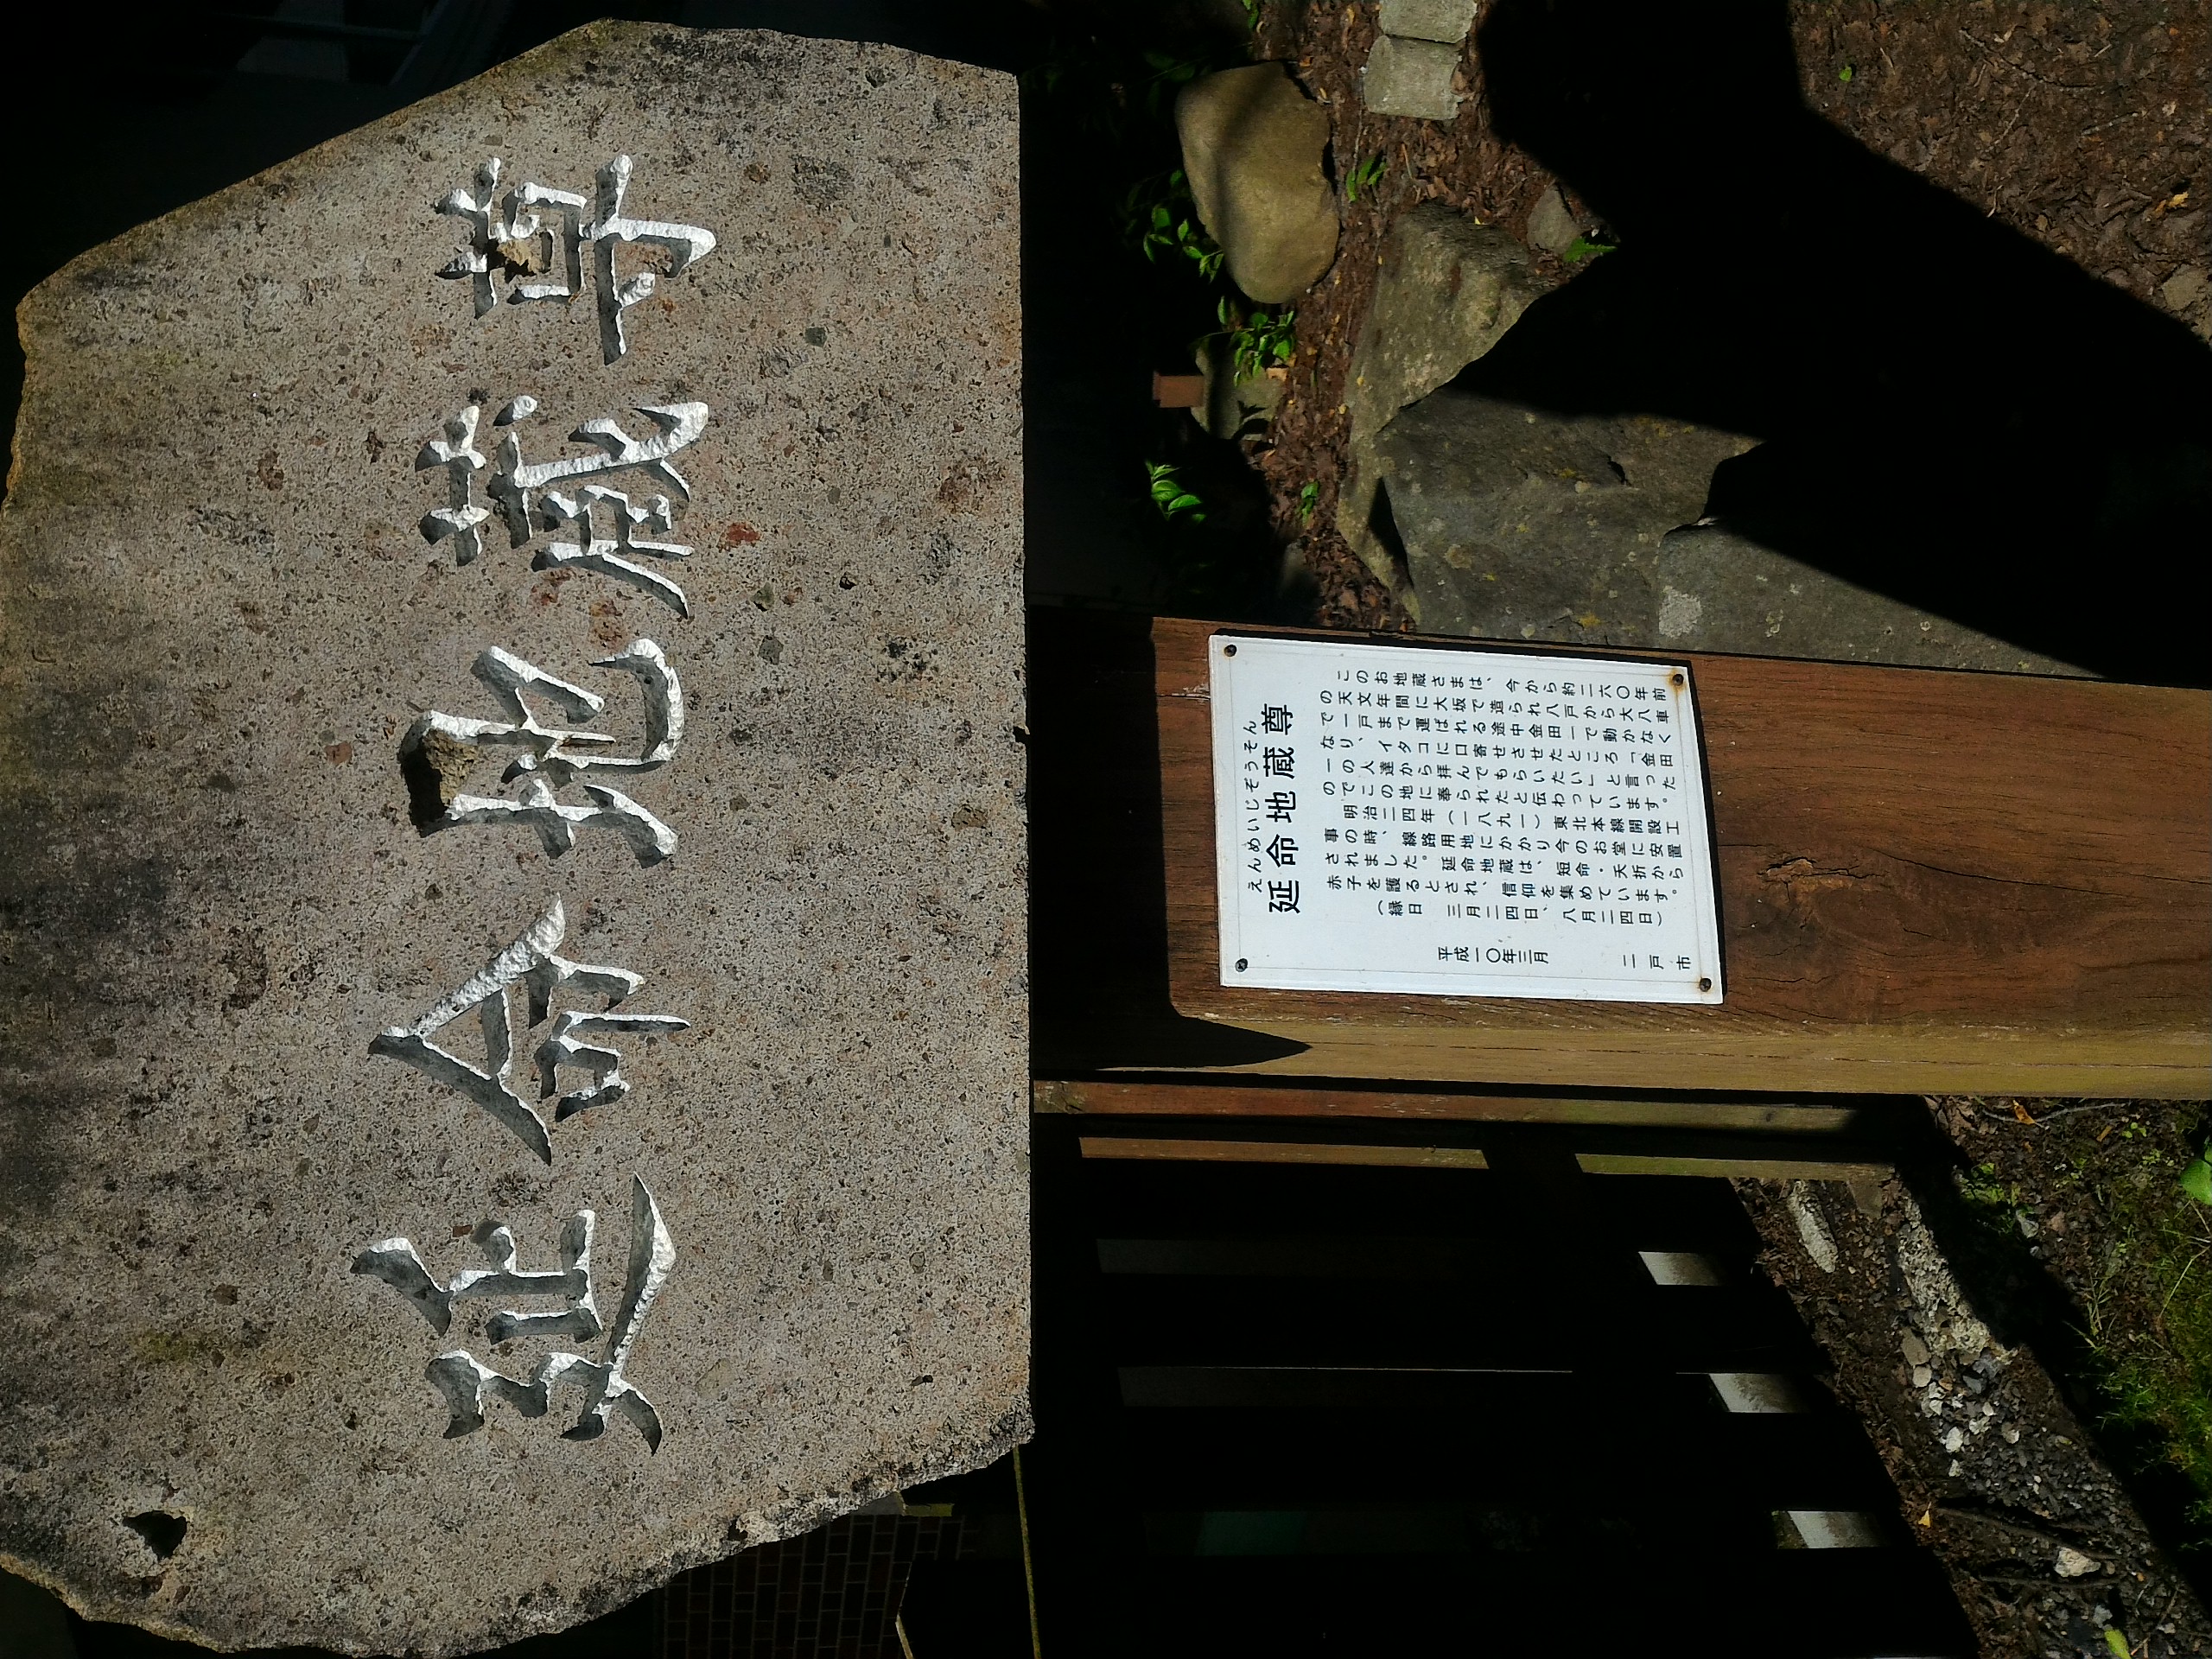 延命地蔵尊
えんめいじぞうそん
延命地蔵尊
このお地蔵さまは、今から約二六〇年前
の元文年間に大坂で造られ八戸から大八車
で一戸まで運ばれる途中金田一で動かなく
なり、イタコに口寄せさせたところ「金田
一の人達から拝んでもらいたい」と言った
のでこの地に奉られたと伝わっています。
明治二四年(一八九一)東北本線開設工
事の時、線路用地にかかり今のお堂に安置
されました。延命地蔵は、短命・夭折から
赤子を護るとされ、信仰を集めています。
(縁日 三月二四日、八月二四日)
平成一〇年三月
二戸市